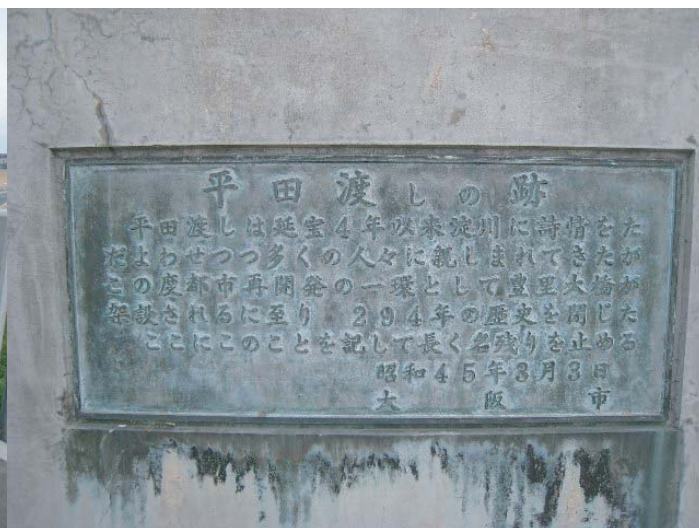 平田渡しの跡
平田渡しは延宝4年以来淀川に詩情をた
だよわせつつ多くの人々に親しまれてきたが
この度都市再開発の一環として豊里大橋が
架設されるに至り 294年の歴史を閉じた
ここにこのことを記して長く名残りを止める
昭和45年3月3日
大阪市